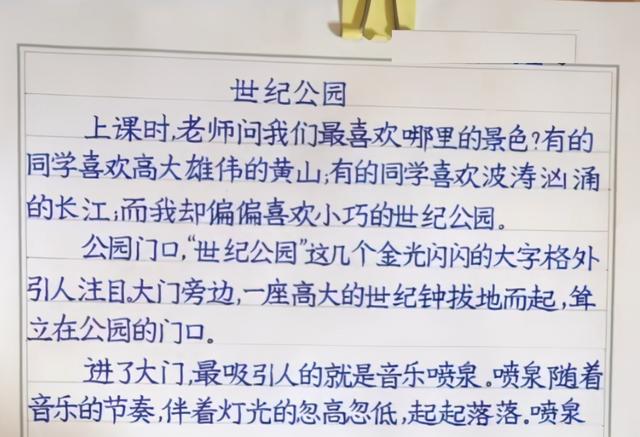 世纪公园
上课时,老师问我们最喜欢哪里的景色?有的
同学喜欢高大雄伟的黄山;有的同学喜欢波涛汹涌
的长江;而我却偏偏喜欢小巧的世纪公园。
公园门口,“世纪公园”这几个金光闪闪的大字格外
引人注目。大门旁边,一座高大的世纪钟拔地而起,耸
立在公园的门口。
进了大门,最吸引人的就是音乐喷泉。喷泉随着
音乐的节奏,伴着灯光的忽高忽低,起起落落。喷泉